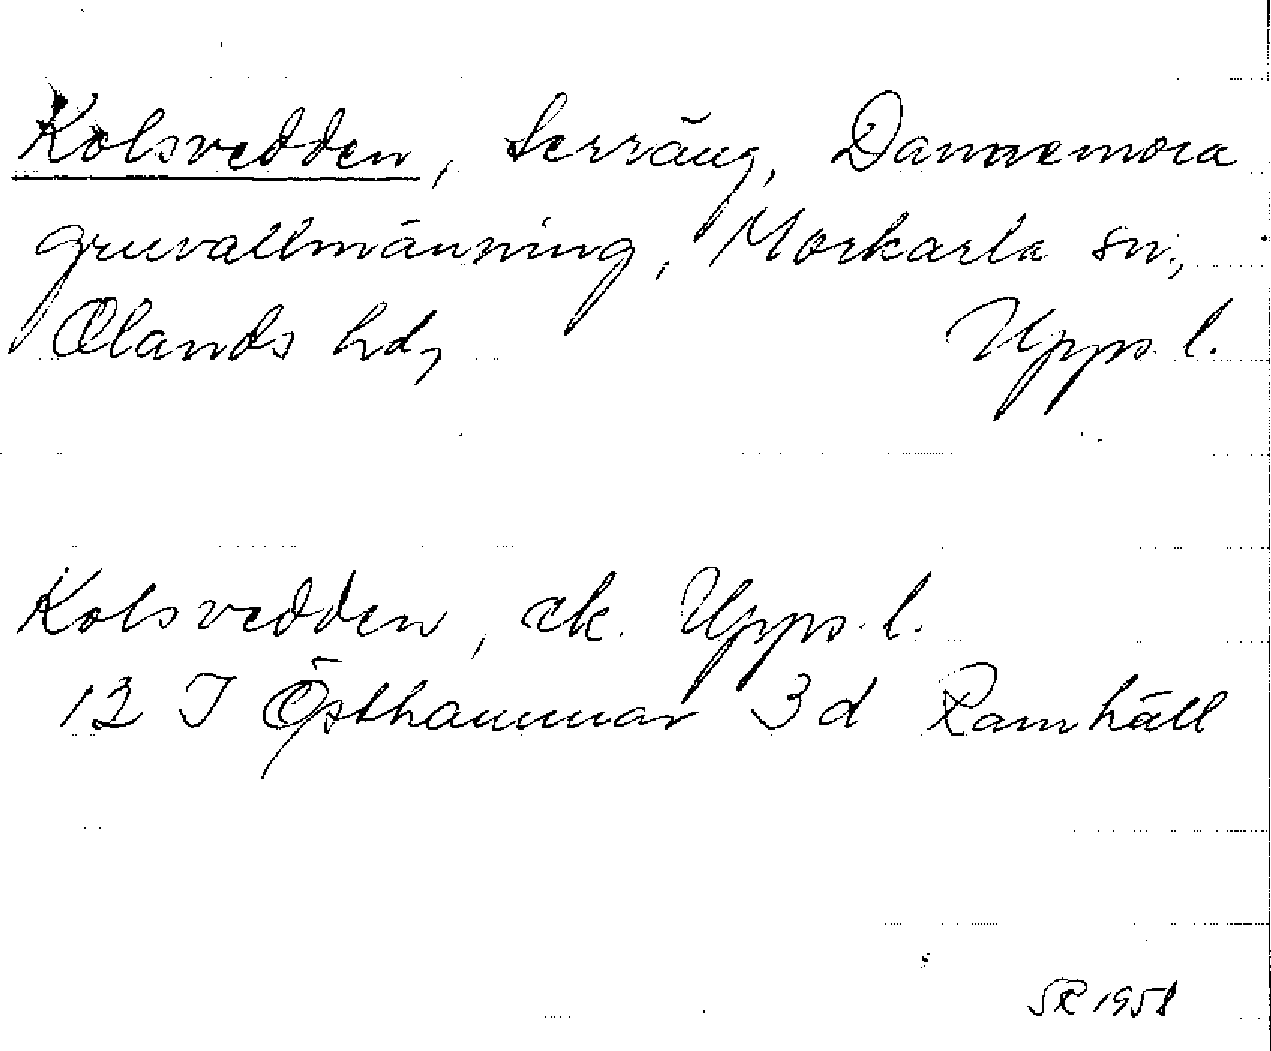 Kolsvedden, terräng, Dannemora
gruvallmänning, Morkarla sn.,
Olands hd,
Upps. l.
Kolsvedden, ek. Upps. l.
12 I Östhammar 3d Ramhäll
SR 1958